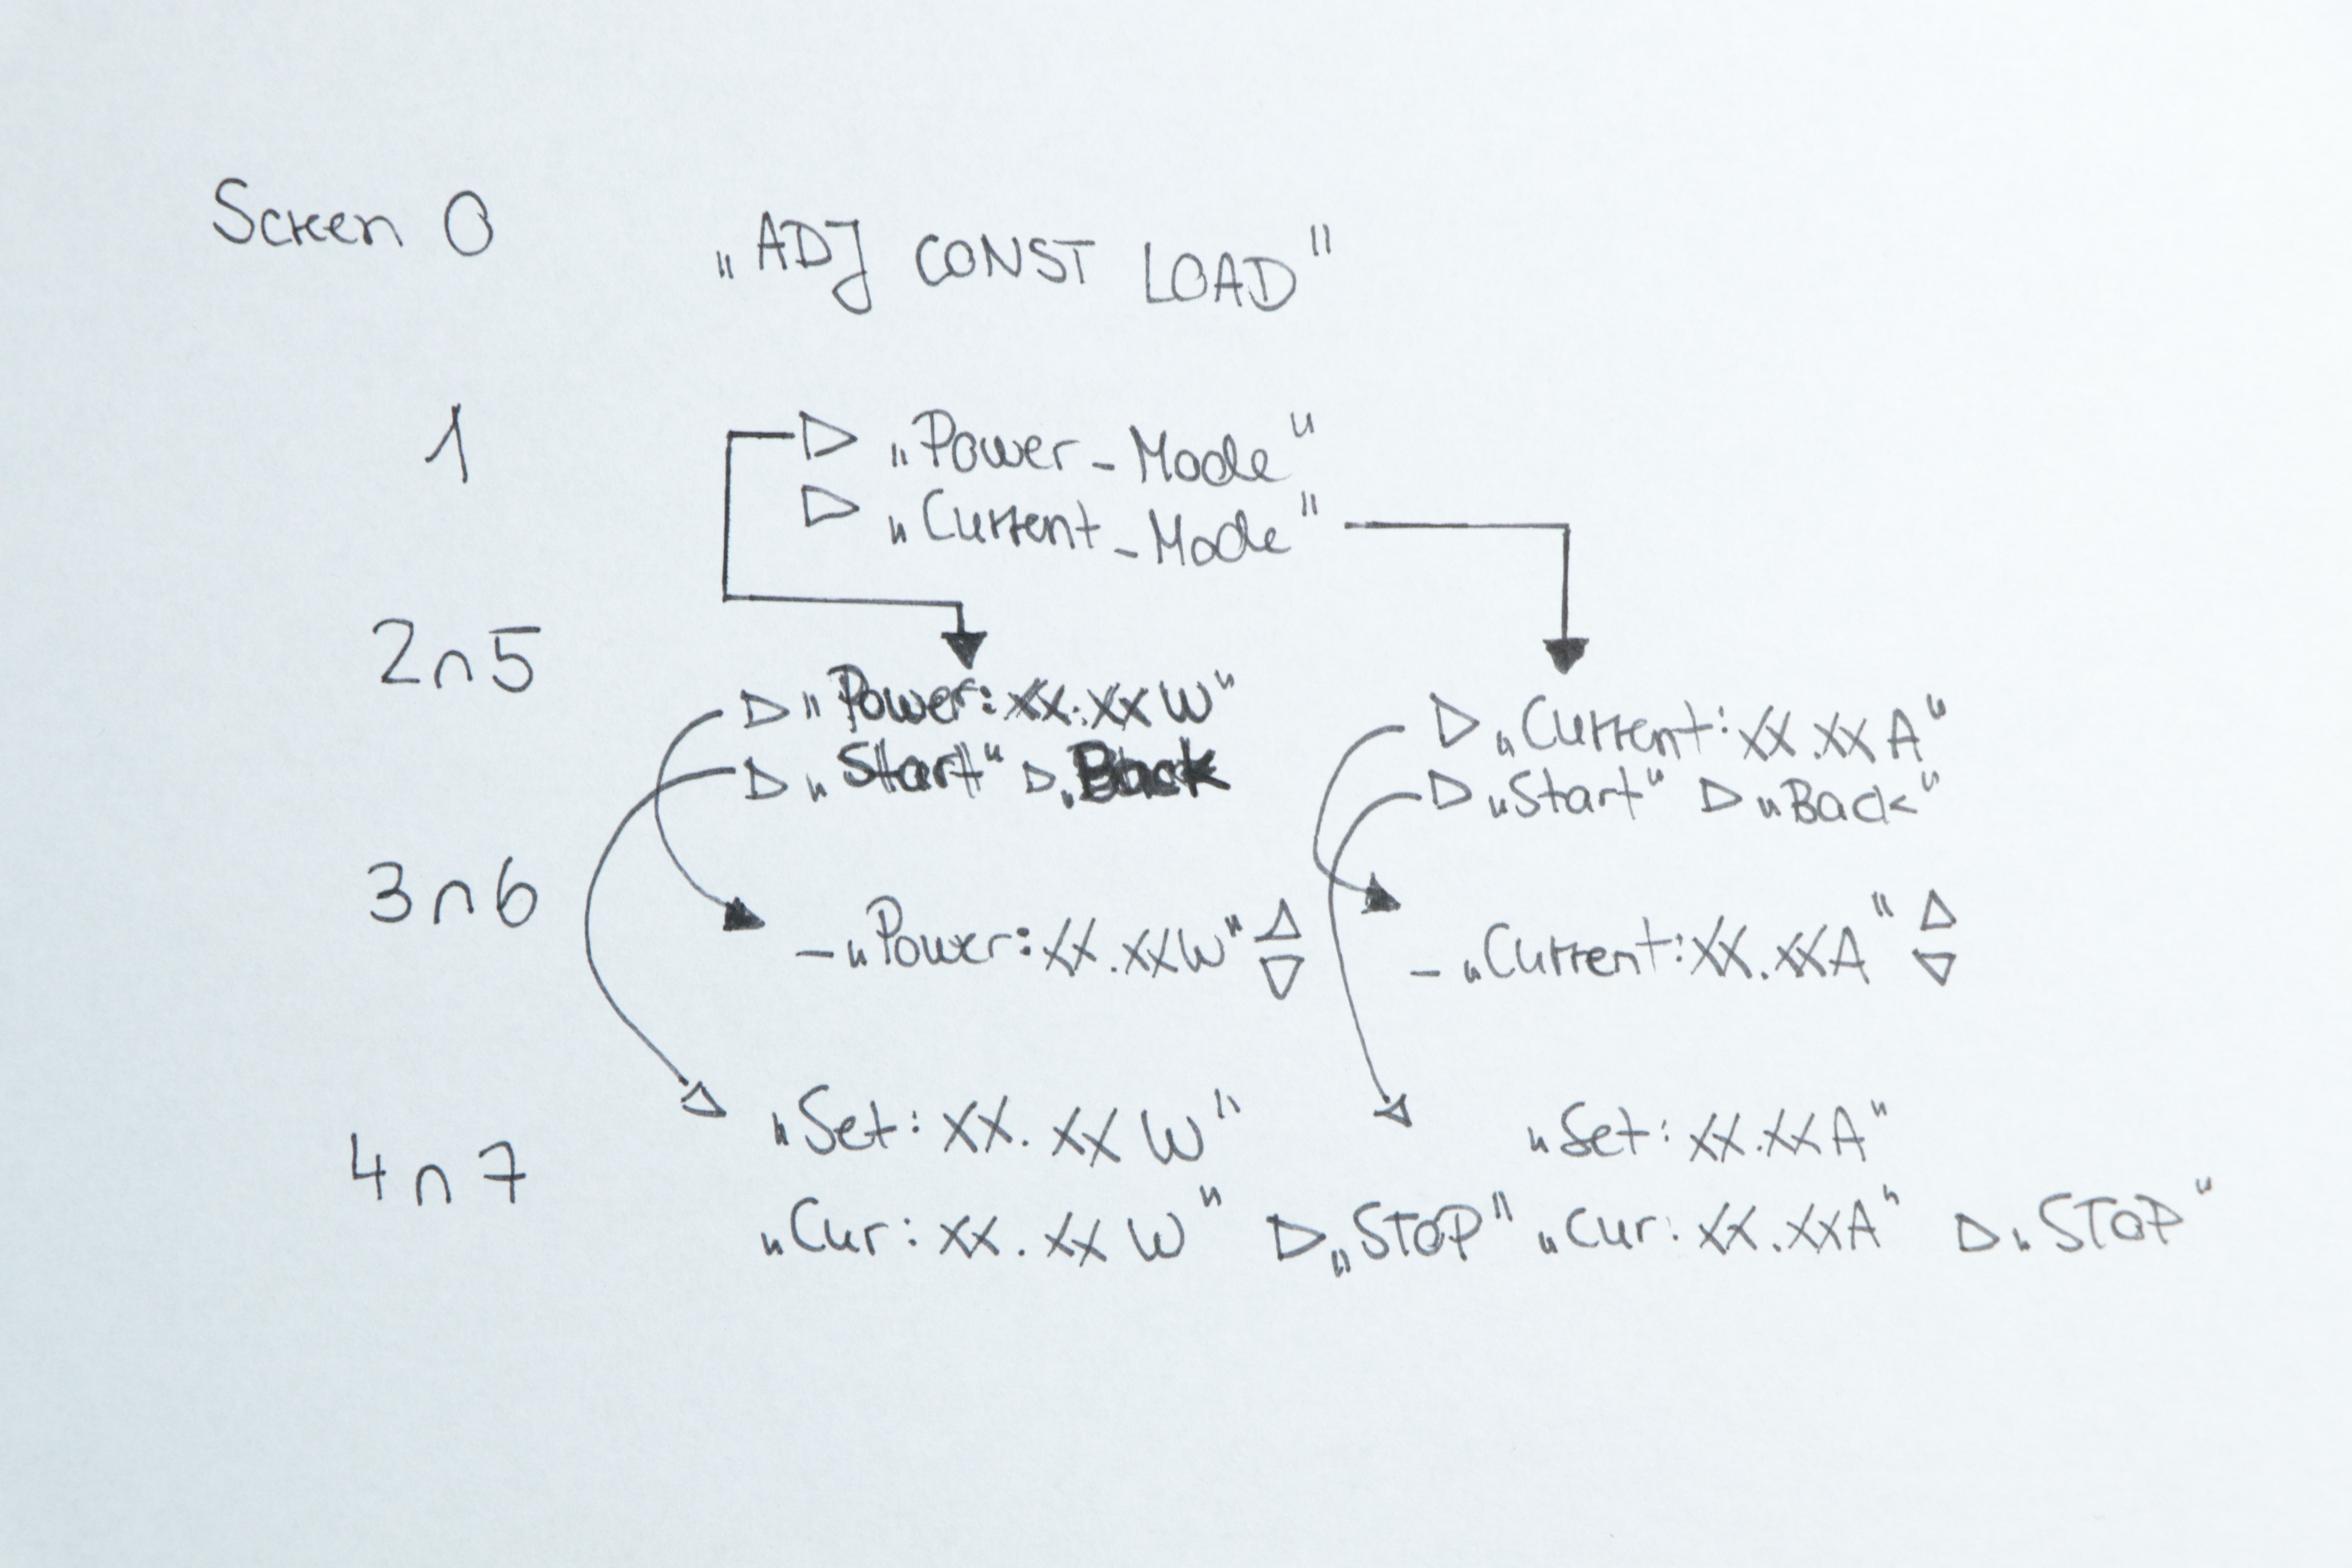 Screen 0 „ADJ CONST LOAD"
1 ▷ „Power-Mode"
▷ „Current-Mode"
2n5 ▷ „Power: XX.XX W" ▷ „Current: XX.XX A"
▷ „Start" ▷ „Back ▷ „Start" ▷ „Back"
3n6 - „Power: XX.XX W" △▽ - „Current: XX.XX A" △▽
4n7 „Set: XX.XX W" „Set: XX.XX A"
„Cur: XX.XX W" ▷ „STOP" „Cur: XX.XX A" ▷ „STOP"